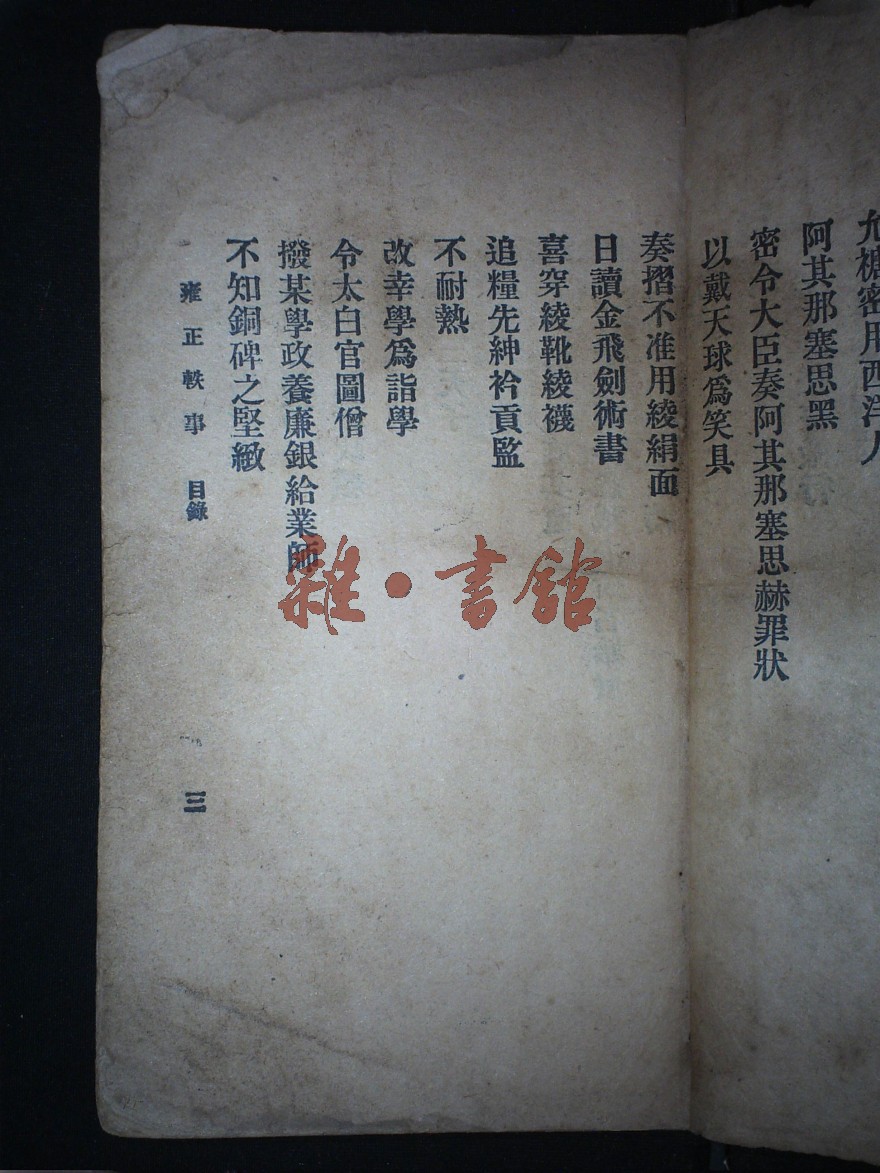 允禟密用西洋人
阿其那塞思黑
密令大臣奏阿其那塞思赫罪狀
以戴天球爲笑具
奏摺不准用綾絹面
日讀金飛劍術書
喜穿綾靴綾襪
追糧先紳衿貢監
不耐熱
改幸學爲詣學
令太白官圖僧
撥某學政養廉銀給業師
不知銅碑之堅緻
雍正軼事 目錄
三
雜·書館